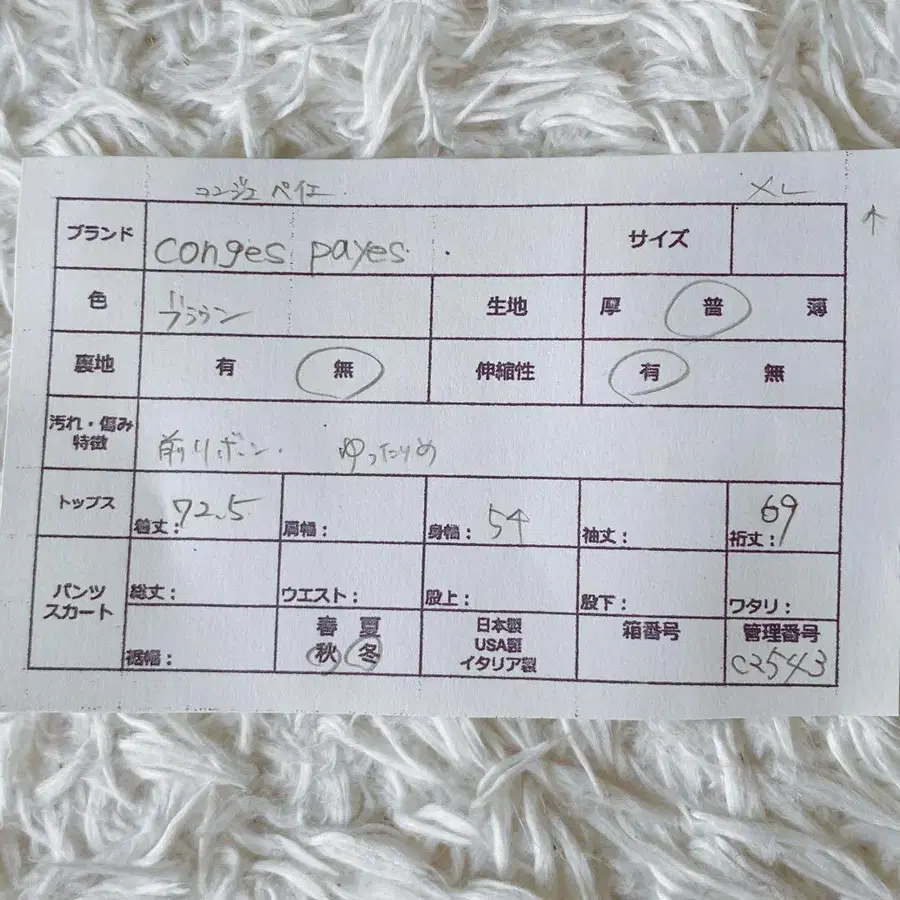 コンジェ ペイエ XL
ブランド conges payes サイズ
色 ブラウン 生地 厚 普 薄
裏地 有 無 伸縮性 有 無
汚れ・傷み
特徴 前リボン. ゆったりめ
トップス 着丈: 72.5 肩幅: 身幅: 54 袖丈: 裄丈: 69
パンツ
スカート 総丈: ウエスト: 股上: 股下: ワタリ:
裾幅: 春 夏 日本製 箱番号 管理番号
秋 冬 USA製 C2543
イタリア製